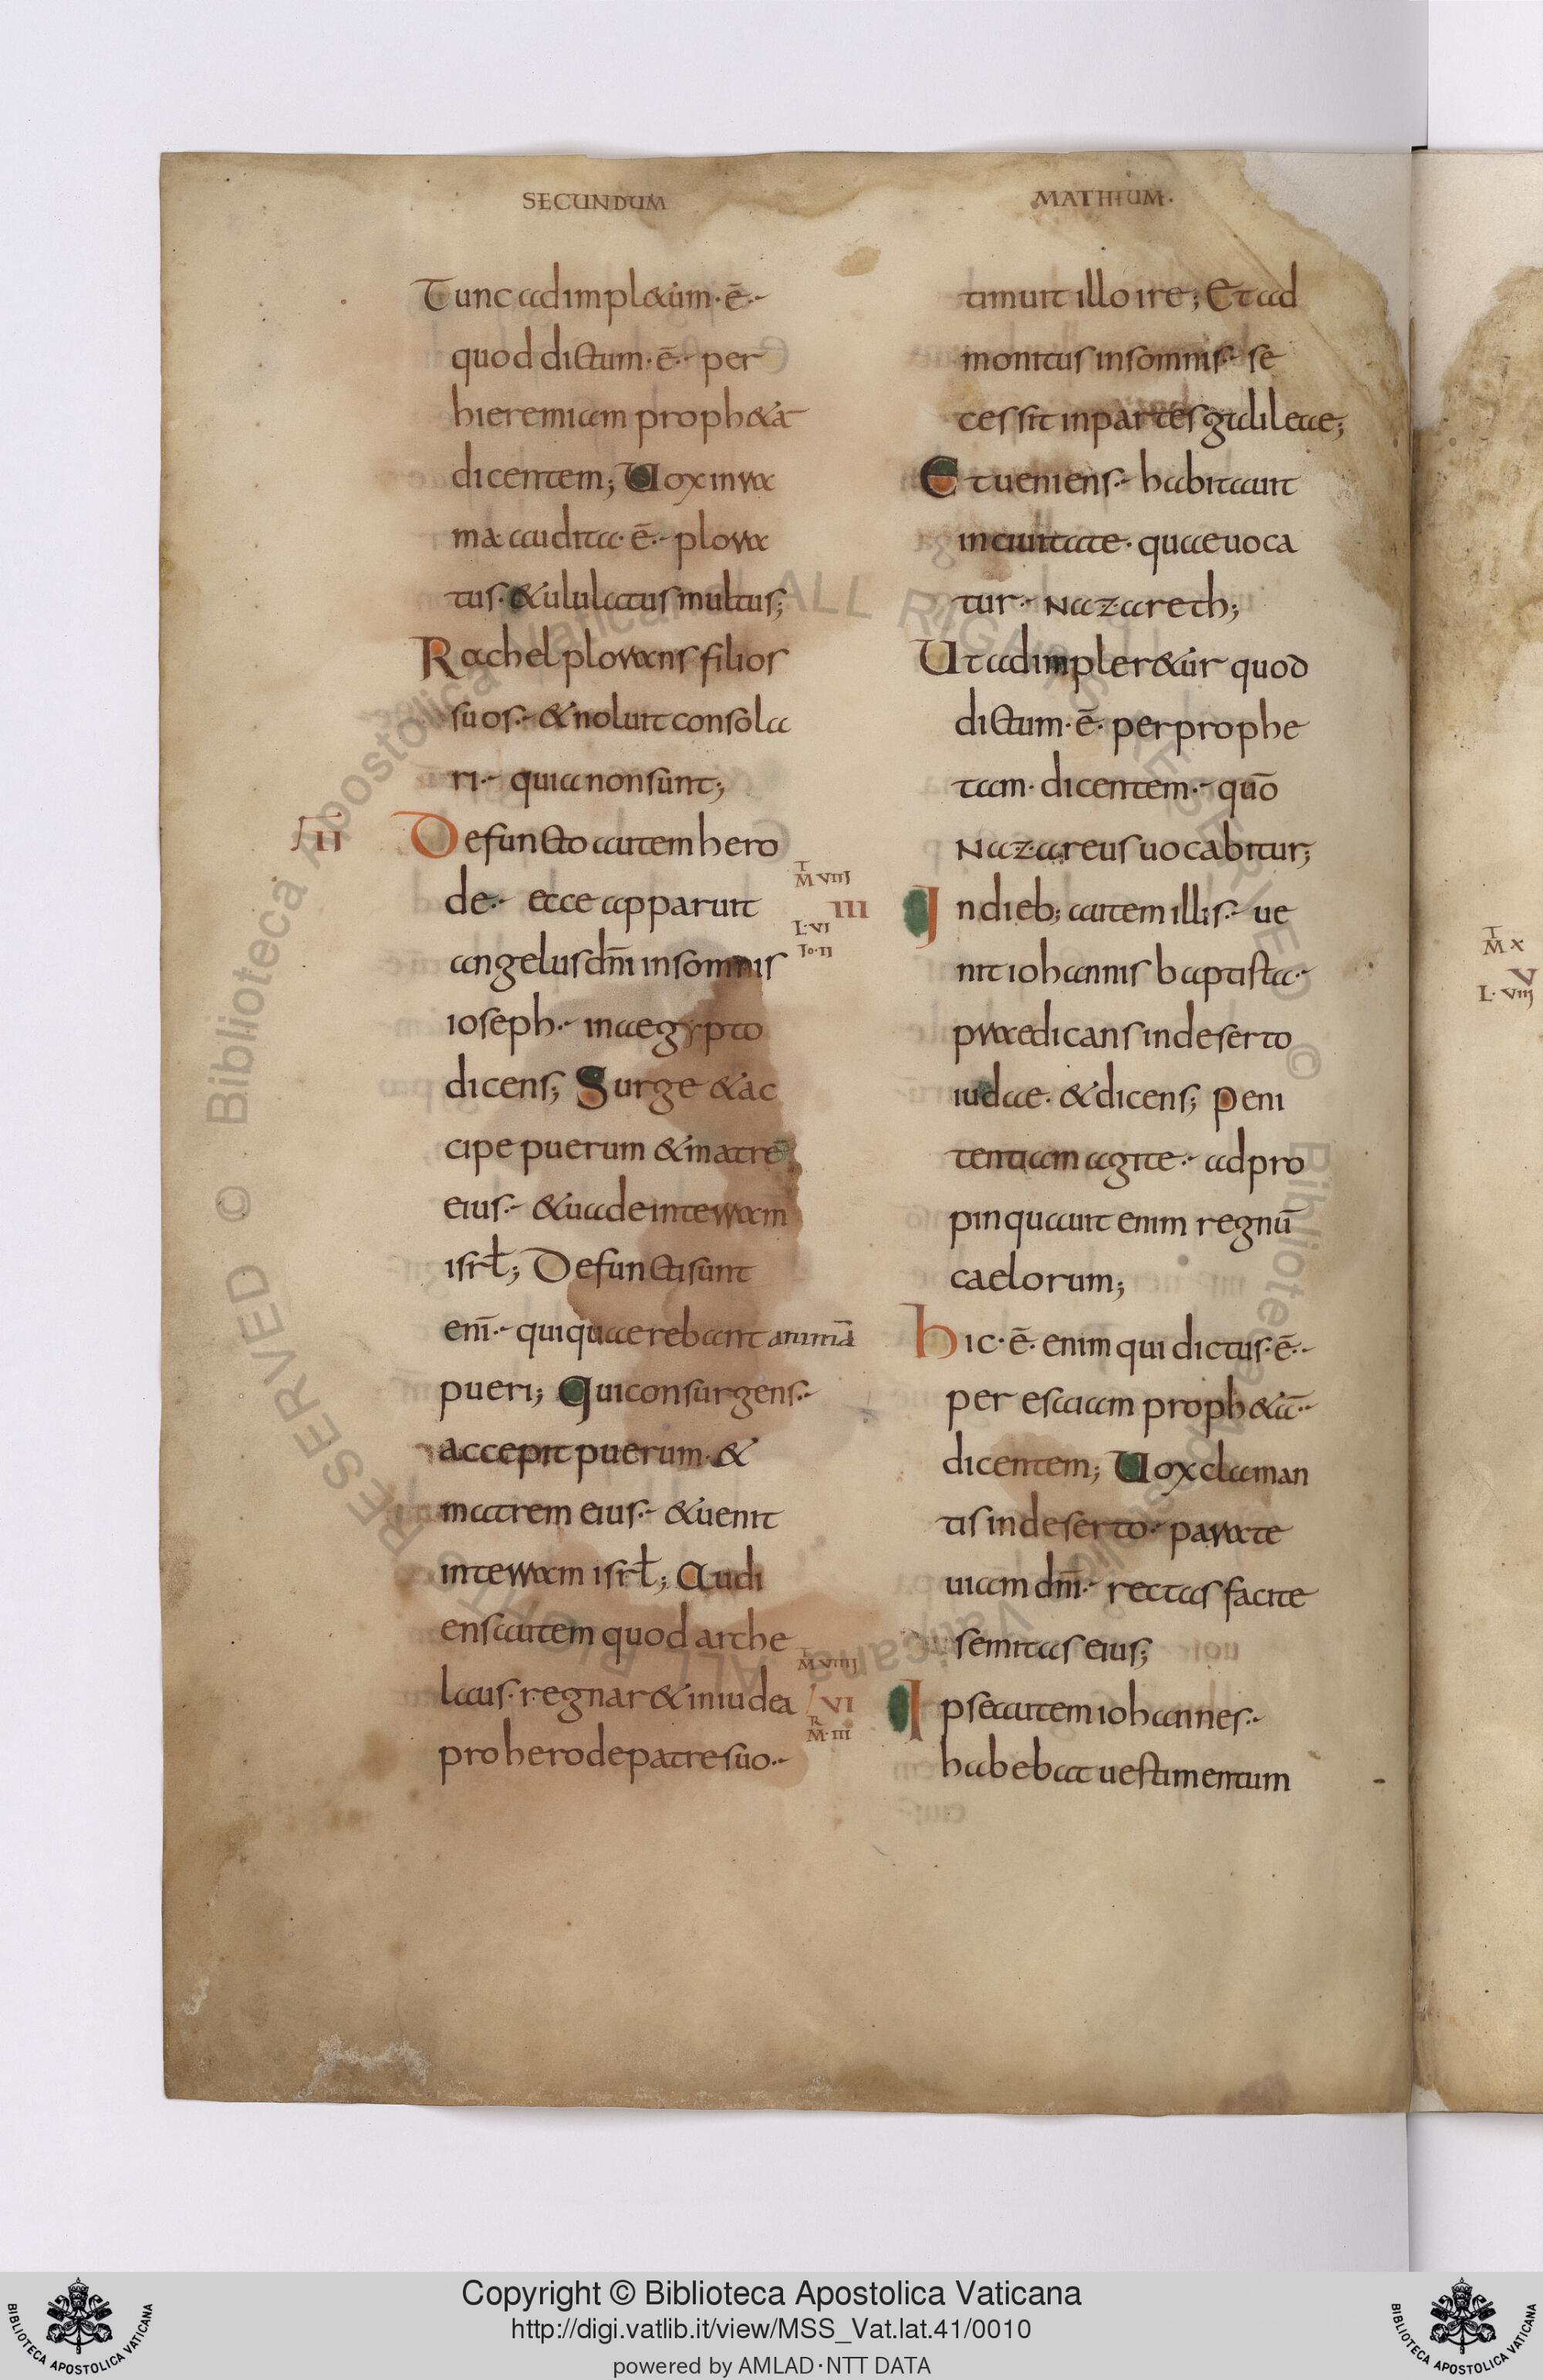 SECUNDUM
Tunc adimpl&um·ē·-
quod dictum·ē·- per
hieremiam proph&ā
dicentem; Uox inra
ma· audita·ē·- plora
tus·&ululatus multus;
Rachel plorans filios
suos·- &noluit consola
ri·- quia non sunt;
III Defuncto autem hero
de·- ecce apparuit
angelus dn̄i insomnis
ioseph·- inaegypto
dicens; Surge &ac
cipe puerum &matrē
eius·- &uade interram
isrł; Defuncti sunt
enī·- qui quaerebant animā
pueri; Qui consurgens·-
accepit puerum·&
matrem eius·- &uenit
interram isrł; Audi
ens autem quod arche
laus·regnar& iniudea
pro herode patre suo·-
T
M VIIII
III
L·VI
Io·II
T
M VIIII
VI
R
M·III
MATHEUM·
timuit illo ire; Et ad
monitus insomnis·- se
cessit inpartes galileae;
Et ueniens·- habitauit
inciuitate·quae uoca
tur·- Nazareth;
Ut adimpler&ur quod
dictum·ē·per prophe
tam·dicentem·- quō
Nazareus uocabitur;
Indieb; autem illis·- ue
nit iohannis baptista·-
praedicans indeserto
iudae·&dicens; Peni
tentiam agite·- adpro
pinquauit enim regnū
caelorum;
Hic·ē·enim qui dictus·ē·-
per esaiam proph&ā·-
dicentem; Uox claman
tis indeserto·- parate
uiam dn̄i·- rectas facite
semitas eius;
Ipse autem iohannes·-
habebat uestimentum
T
M X
V
L·VIII
Copyright © Biblioteca Apostolica Vaticana
http://digi.vatlib.it/view/MSS_Vat.lat.41/0010
powered by AMLAD·NTT DATA
BIBLIOTECA APOSTOLICA VATICANA
BIBLIOTECA APOSTOLICA VATICANA